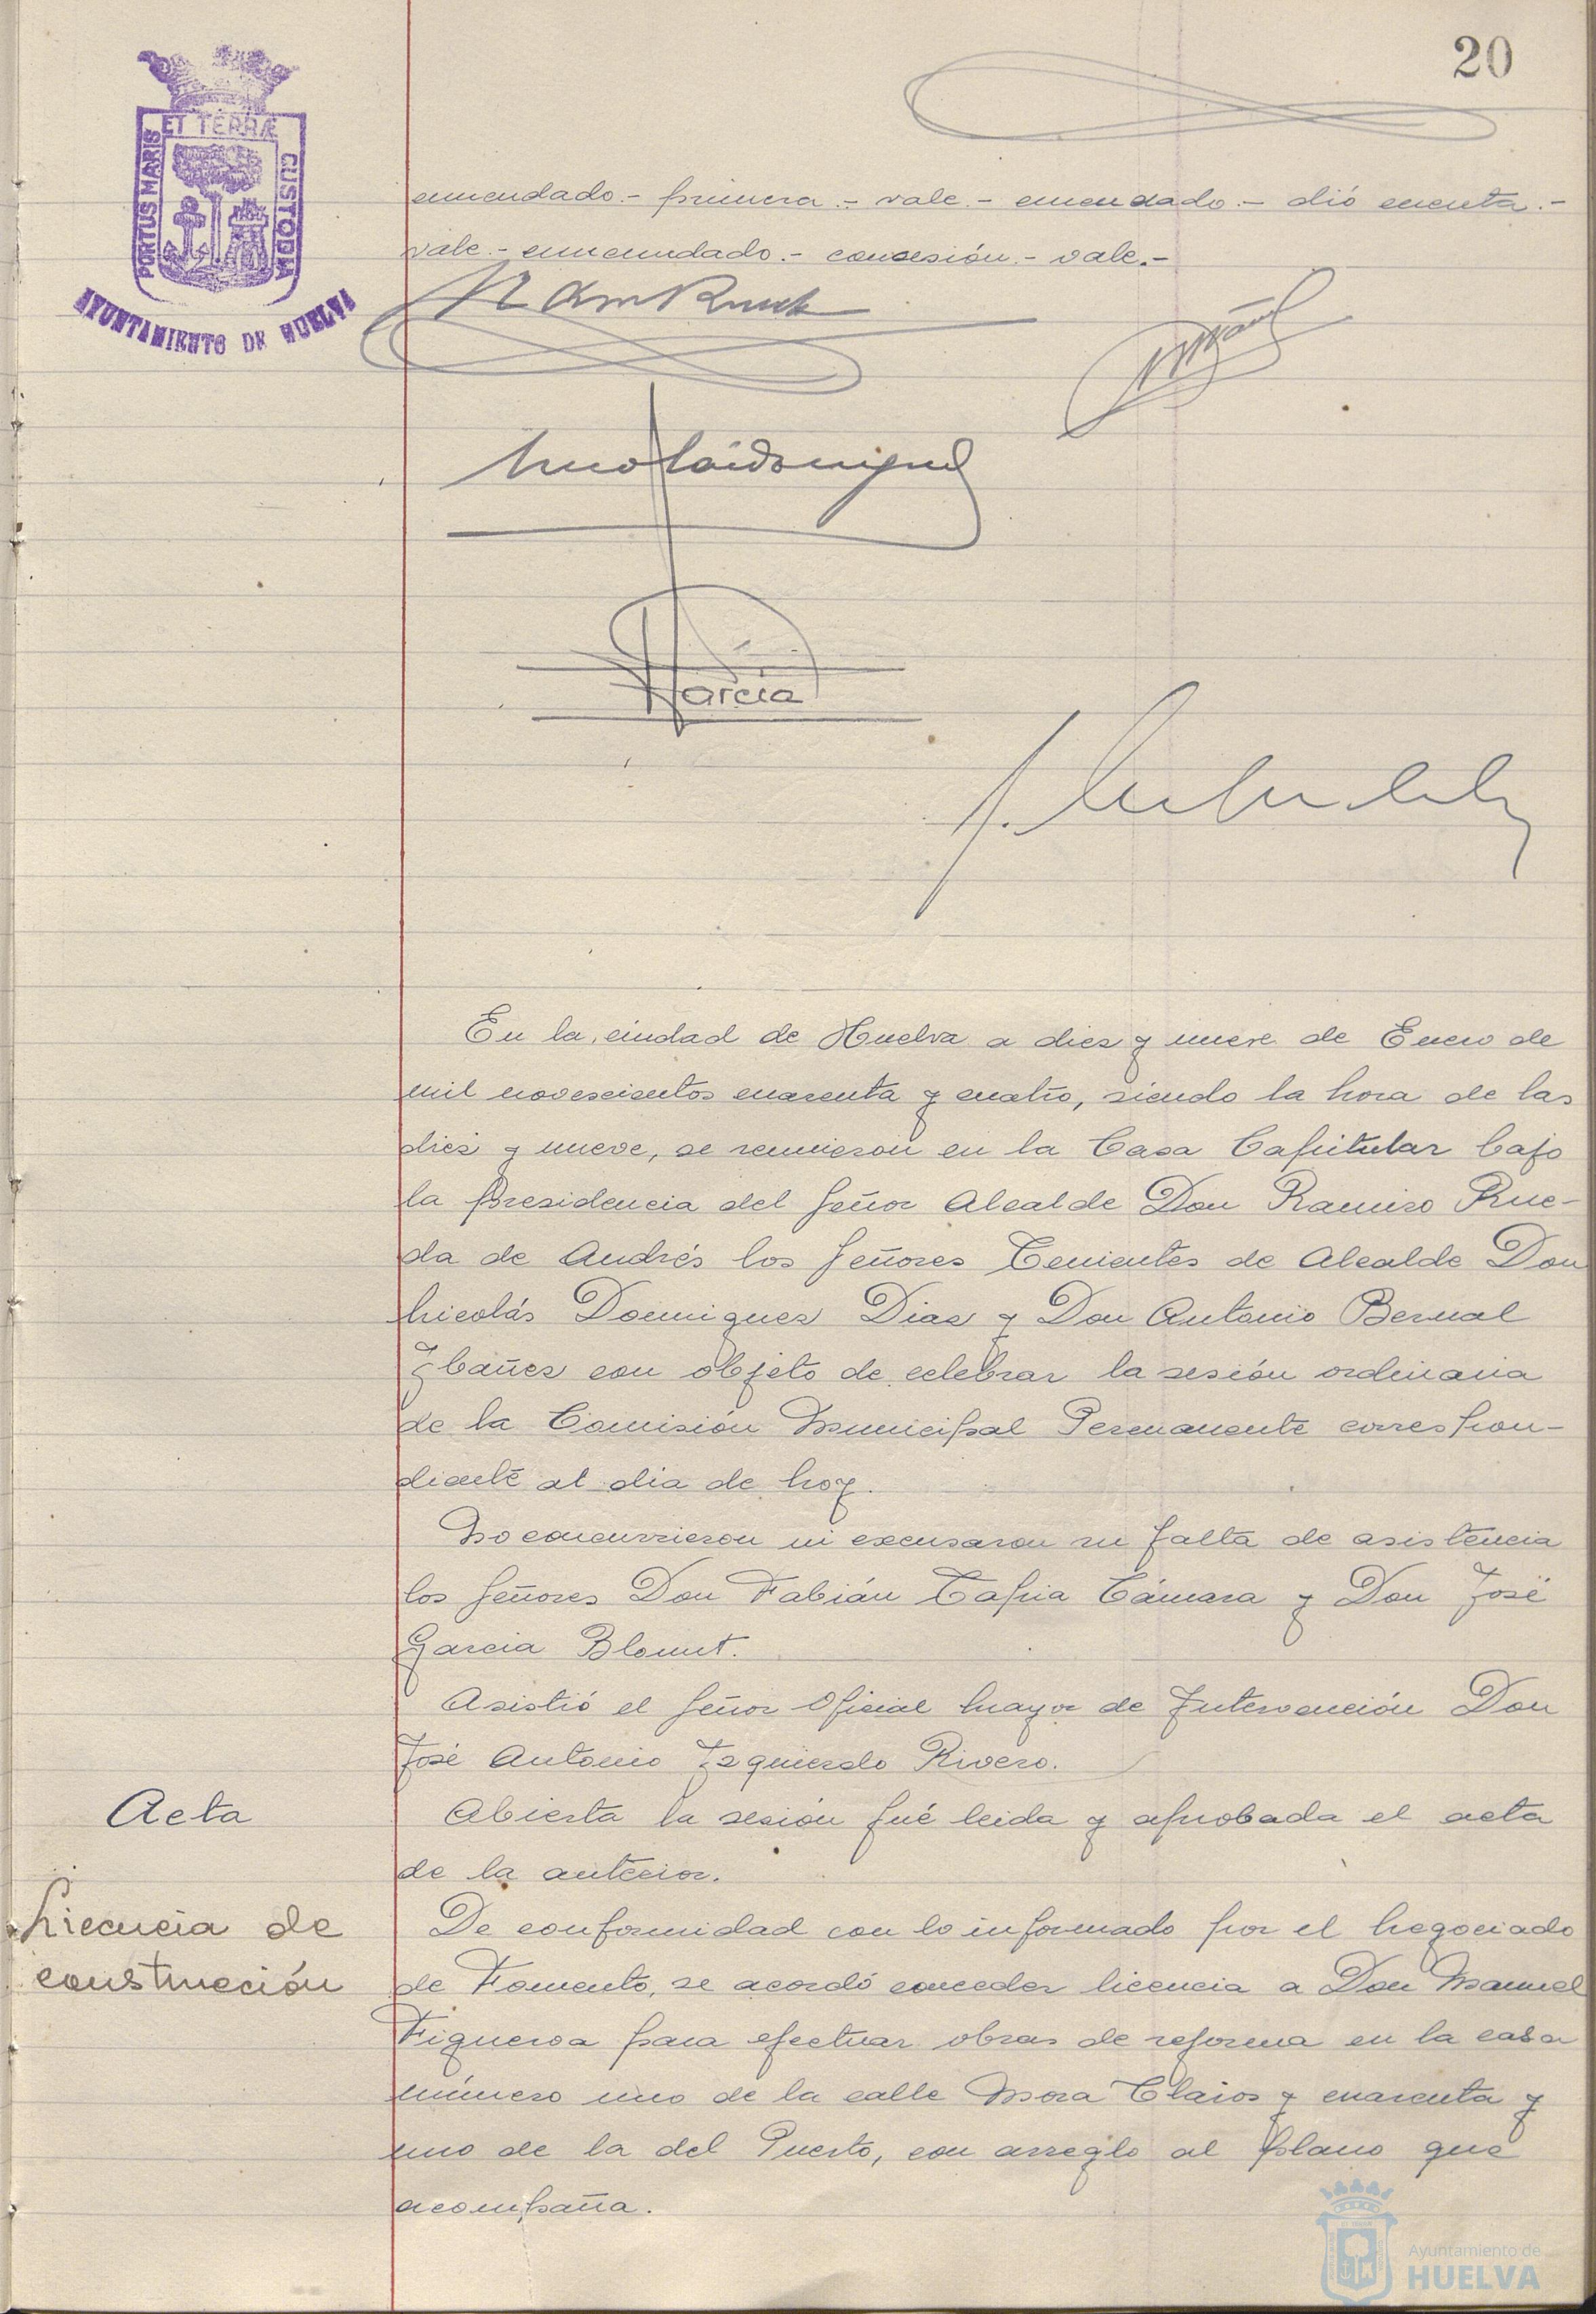 20
PORTUS MARIS ET TERRÆ CUSTODIA
AYUNTAMIENTO DE HUELVA
enmendado.- primera.- vale.- enmendado.- dió cuenta.-
vale.- enmendado.- concesión.- vale.-
García
En la ciudad de Huelva a diez y nueve de Enero de
mil novescientos cuarenta y cuatro, siendo la hora de las
diez y nueve, se reunieron en la Casa Capitular bajo
la Presidencia del Señor Alcalde Don Ramiro Rue-
da de Andrés los Señores Tenientes de Alcalde Don
Nicolás Dominguez Diaz y Don Antonio Bernal
Ybañez con objeto de celebrar la sesión ordinaria
de la Comisión Municipal Permanente correspon-
diente al dia de hoy.
No concurrieron ni excusaron su falta de asistencia
los Señores Don Fabián Tapia Cámara y Don José
Garcia Blomt.
Asistió el Señor Oficial Mayor de Intervención Don
José Antonio Izquierdo Rivero.
Acta
Abierta la sesión fué leida y aprobada el acta
de la anterior.
Licencia de
construcción
De conformidad con lo informado por el Negociado
de Fomento, se acordó conceder licencia a Don Manuel
Figueroa para efectuar obras de reforma en la casa
número uno de la calle Mora Claros y cuarenta y
uno de la del Puerto, con arreglo al plano que
acompaña.
Ayuntamiento de
HUELVA